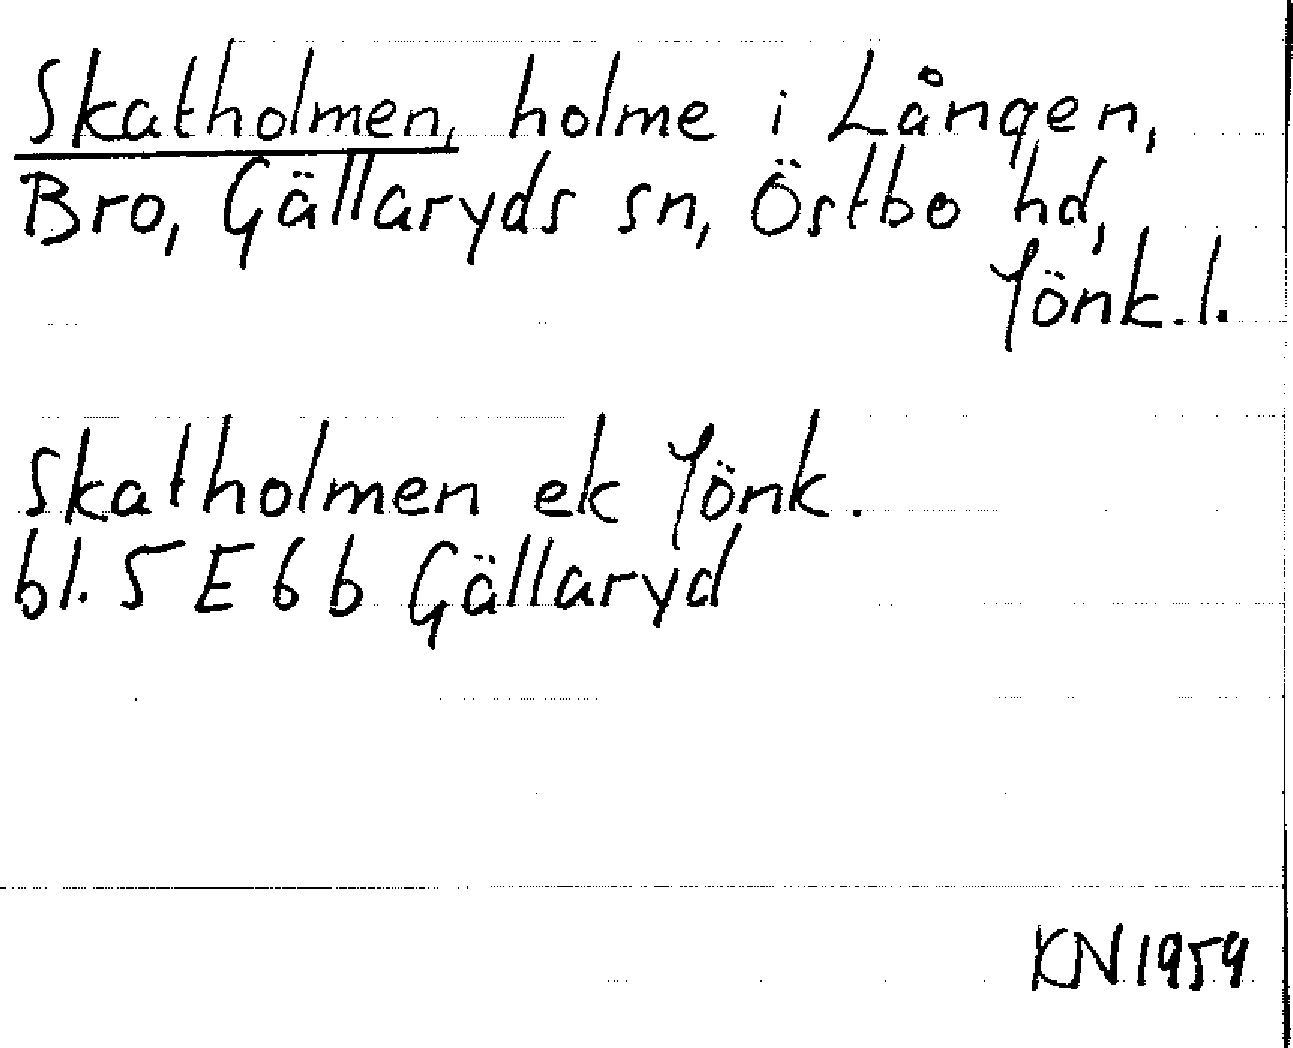 Skatholmen, holme i Lången,
Bro, Gällaryds sn, Östbo hd,
Jönk. l.
Skatholmen ek Jönk.
bl. 5 E 6 b Gällaryd
KN 1959